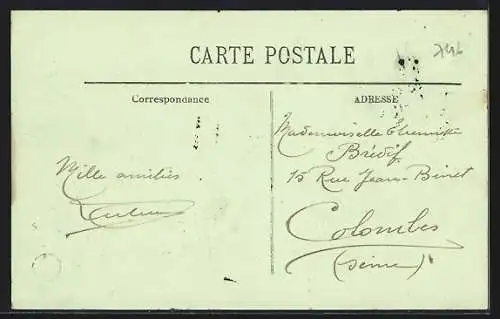 CARTE POSTALE
Correspondance
ADRESSE
Mille amitiés.
Mademoiselle
Brédif
15 Rue Jean-Binet
Colombes
(Seine)